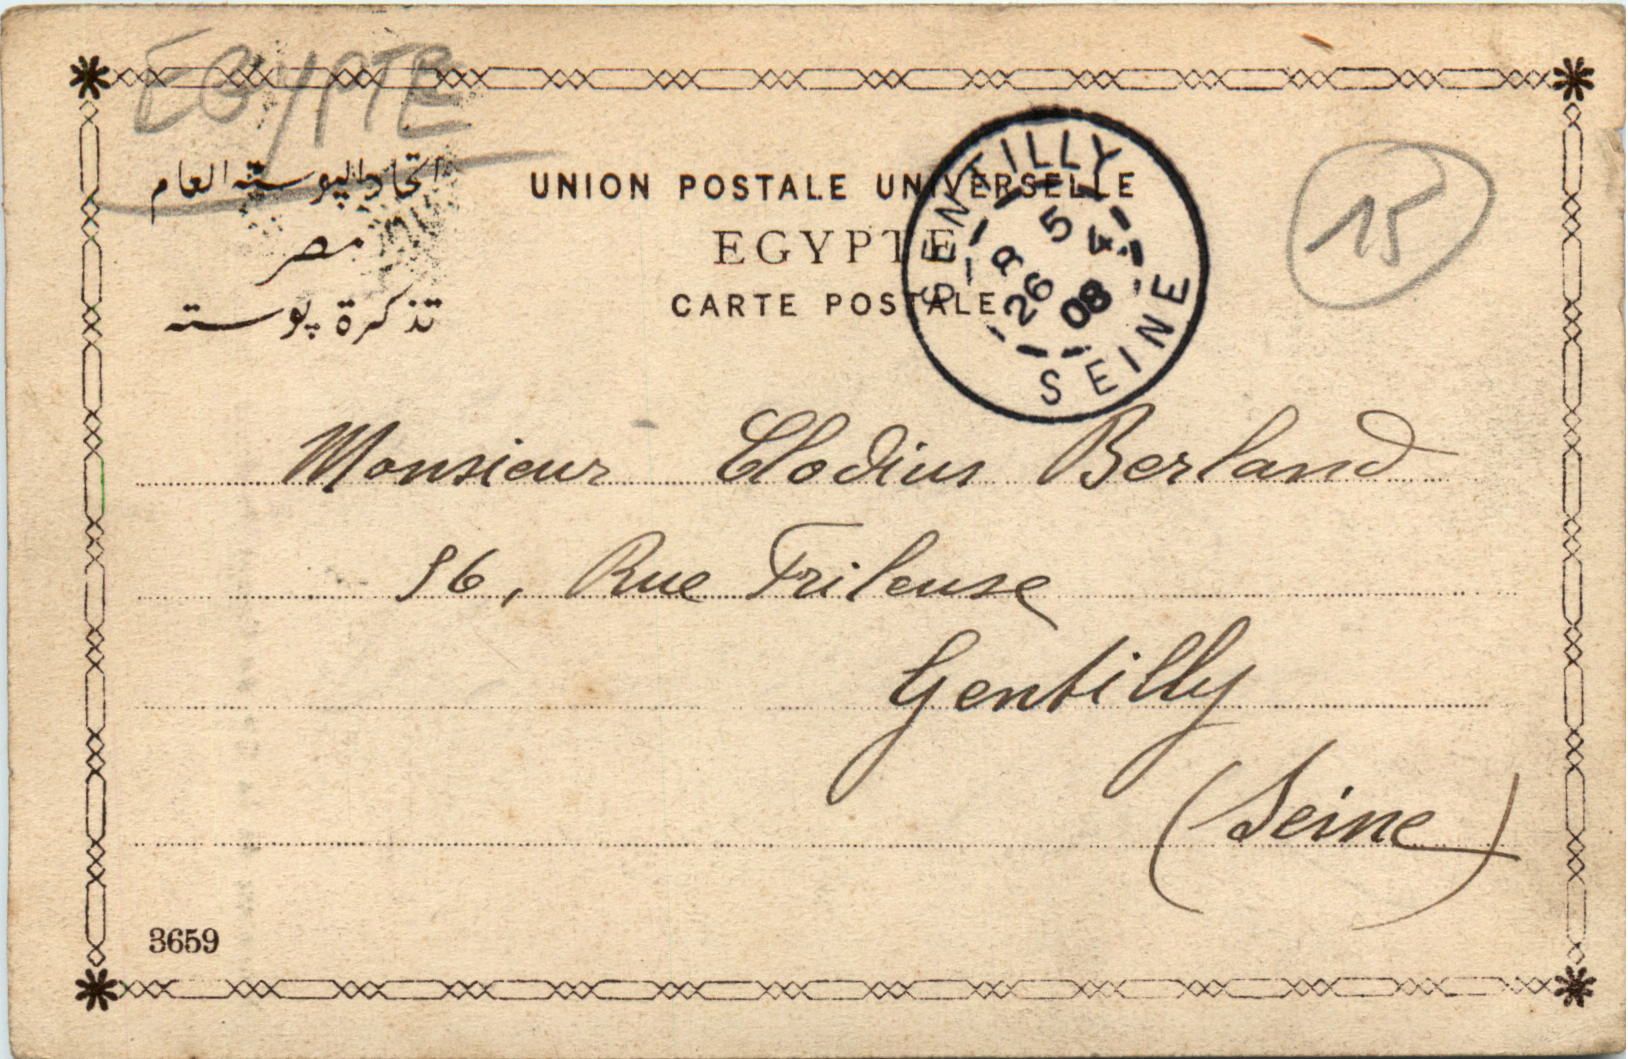 EGYPTE
اتحاد البوسته العام
مصر
تذكرة پوسته
UNION POSTALE UNIVERSELLE
EGYPTE
CARTE POSTALE
GENTILLY
5
26 - 4
08
SEINE
15
Monsieur Clodius Berland
96, Rue Frileuse
Gentilly
(Seine)
3659